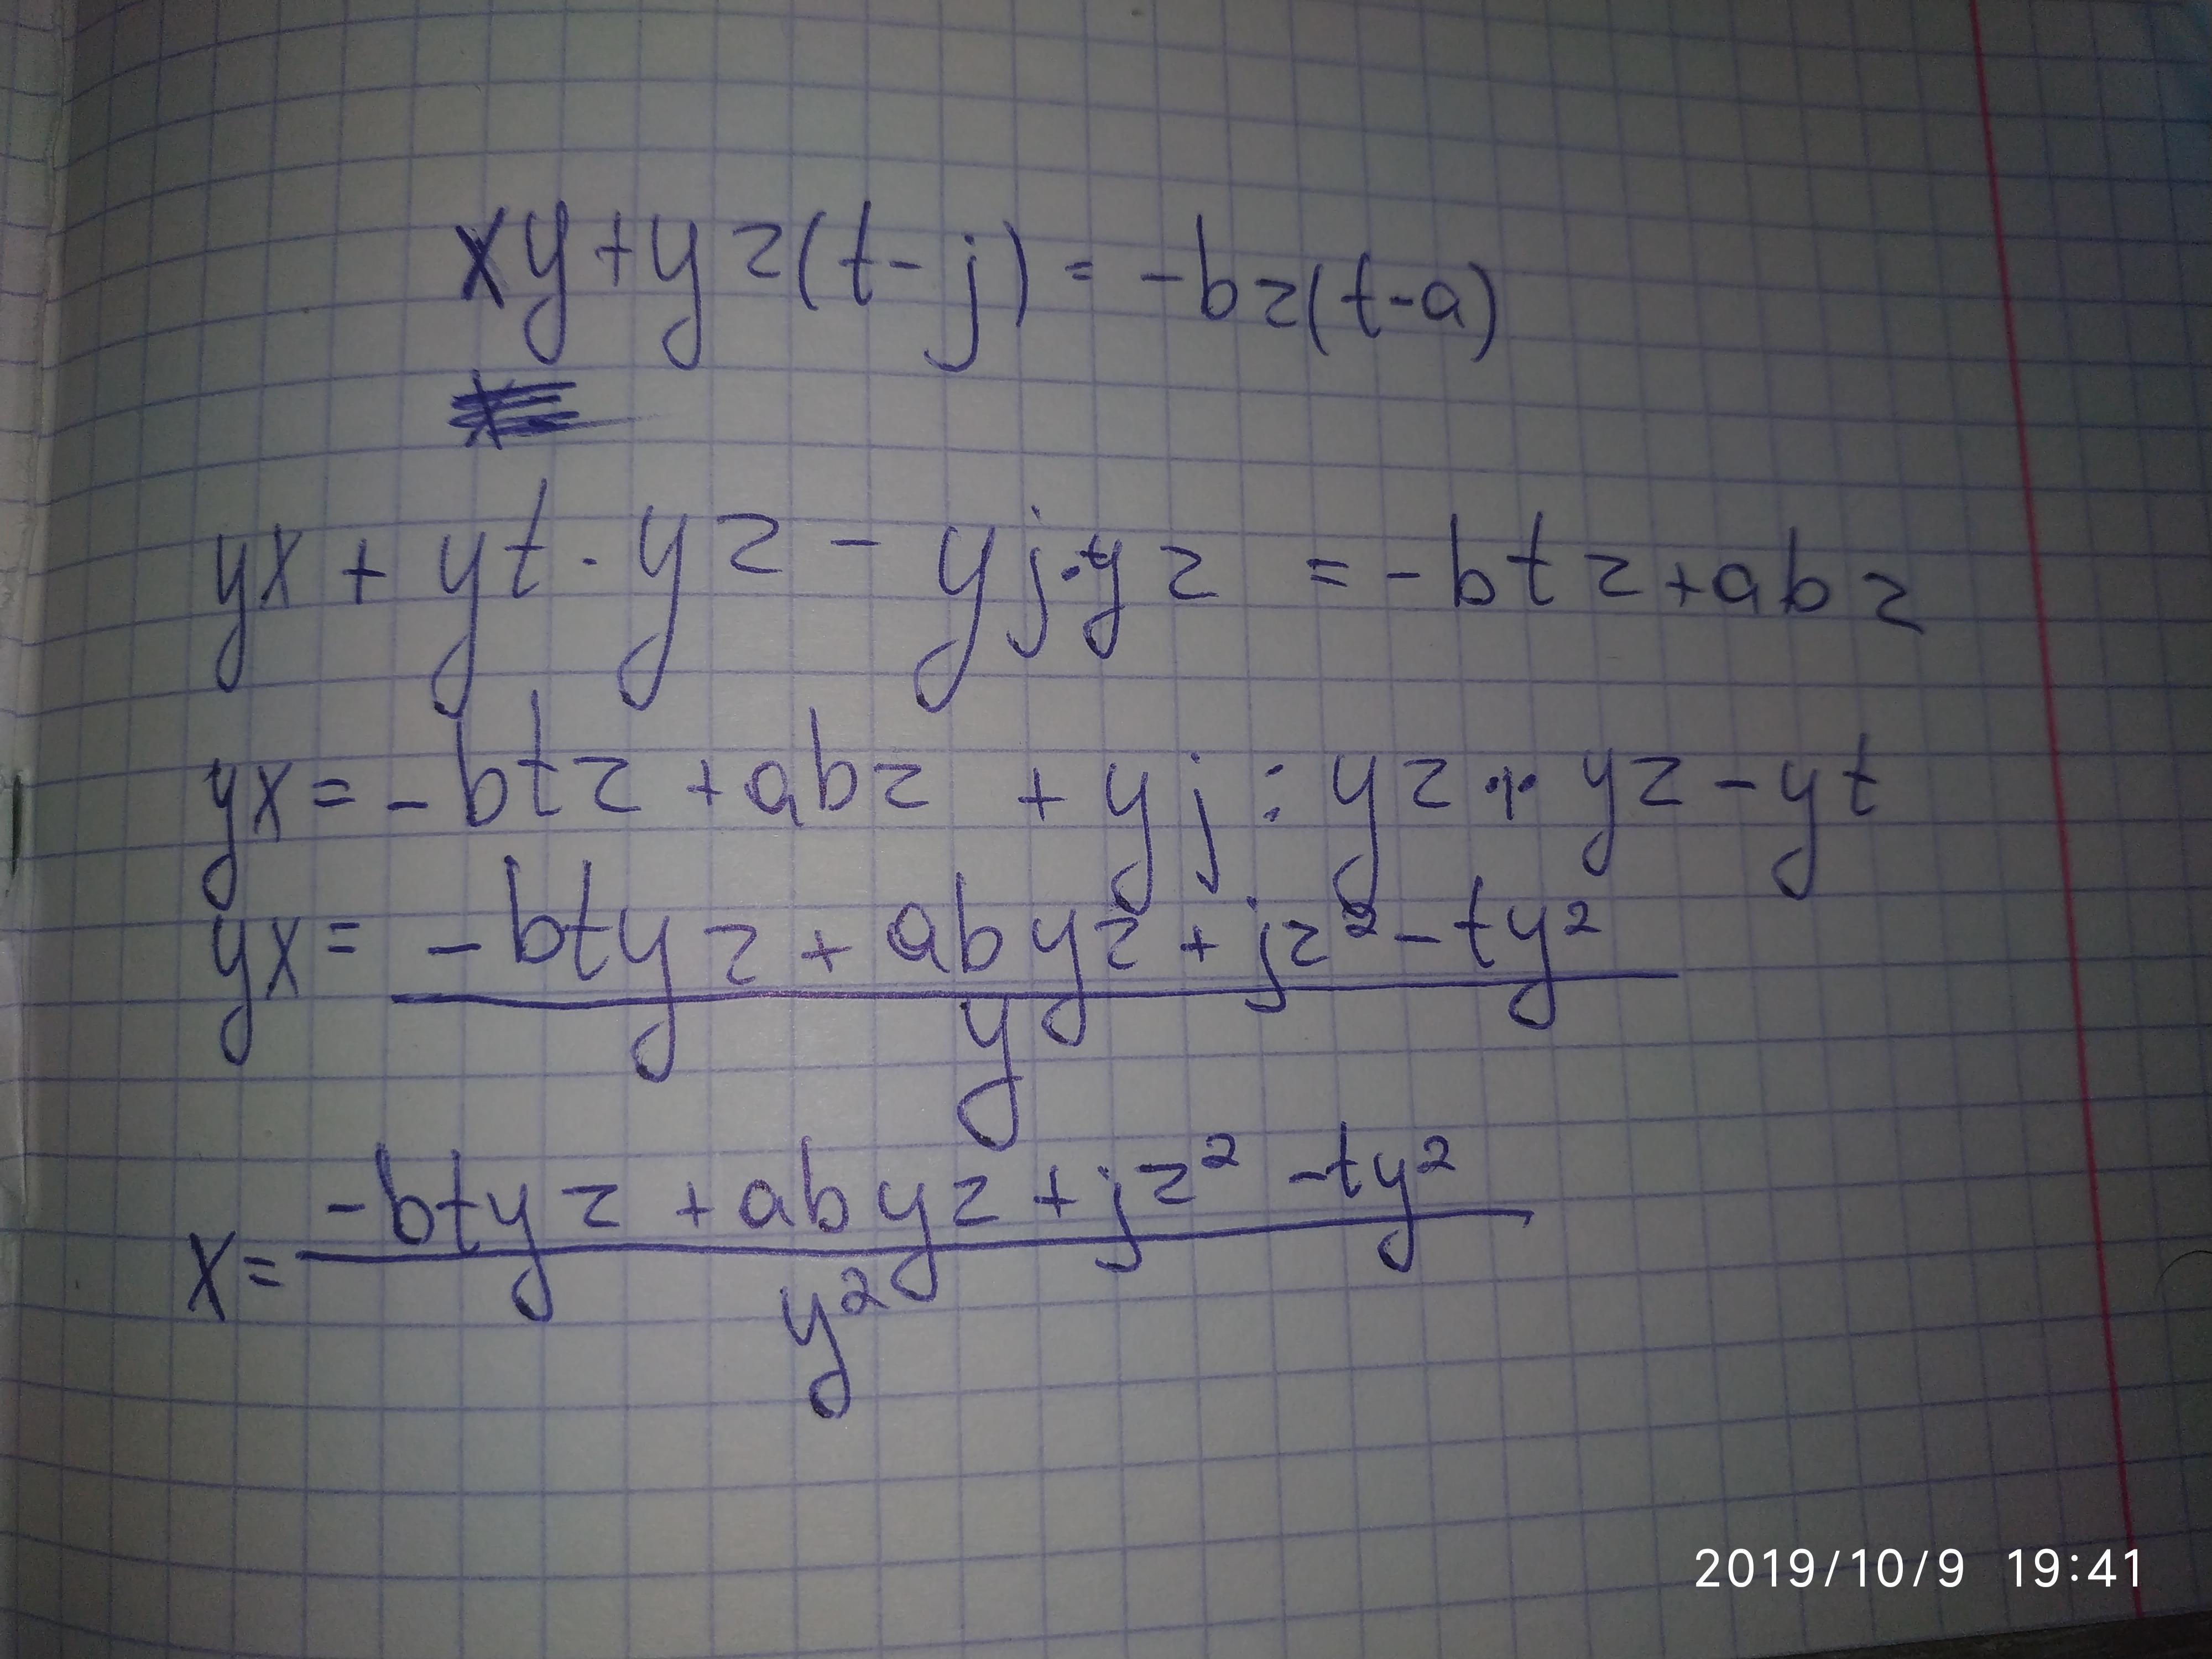 xy+yz(t-j) = -bz(t-a)
yx + yt · yz - yj · yz = -btz+abz
yx = -btz +abz + yj : yz · yz - yt
yx = (-btyz + abyz + jz² - ty²) / y
x = (-btyz + abyz + jz² - ty²) / y²
2019/10/9 19:41